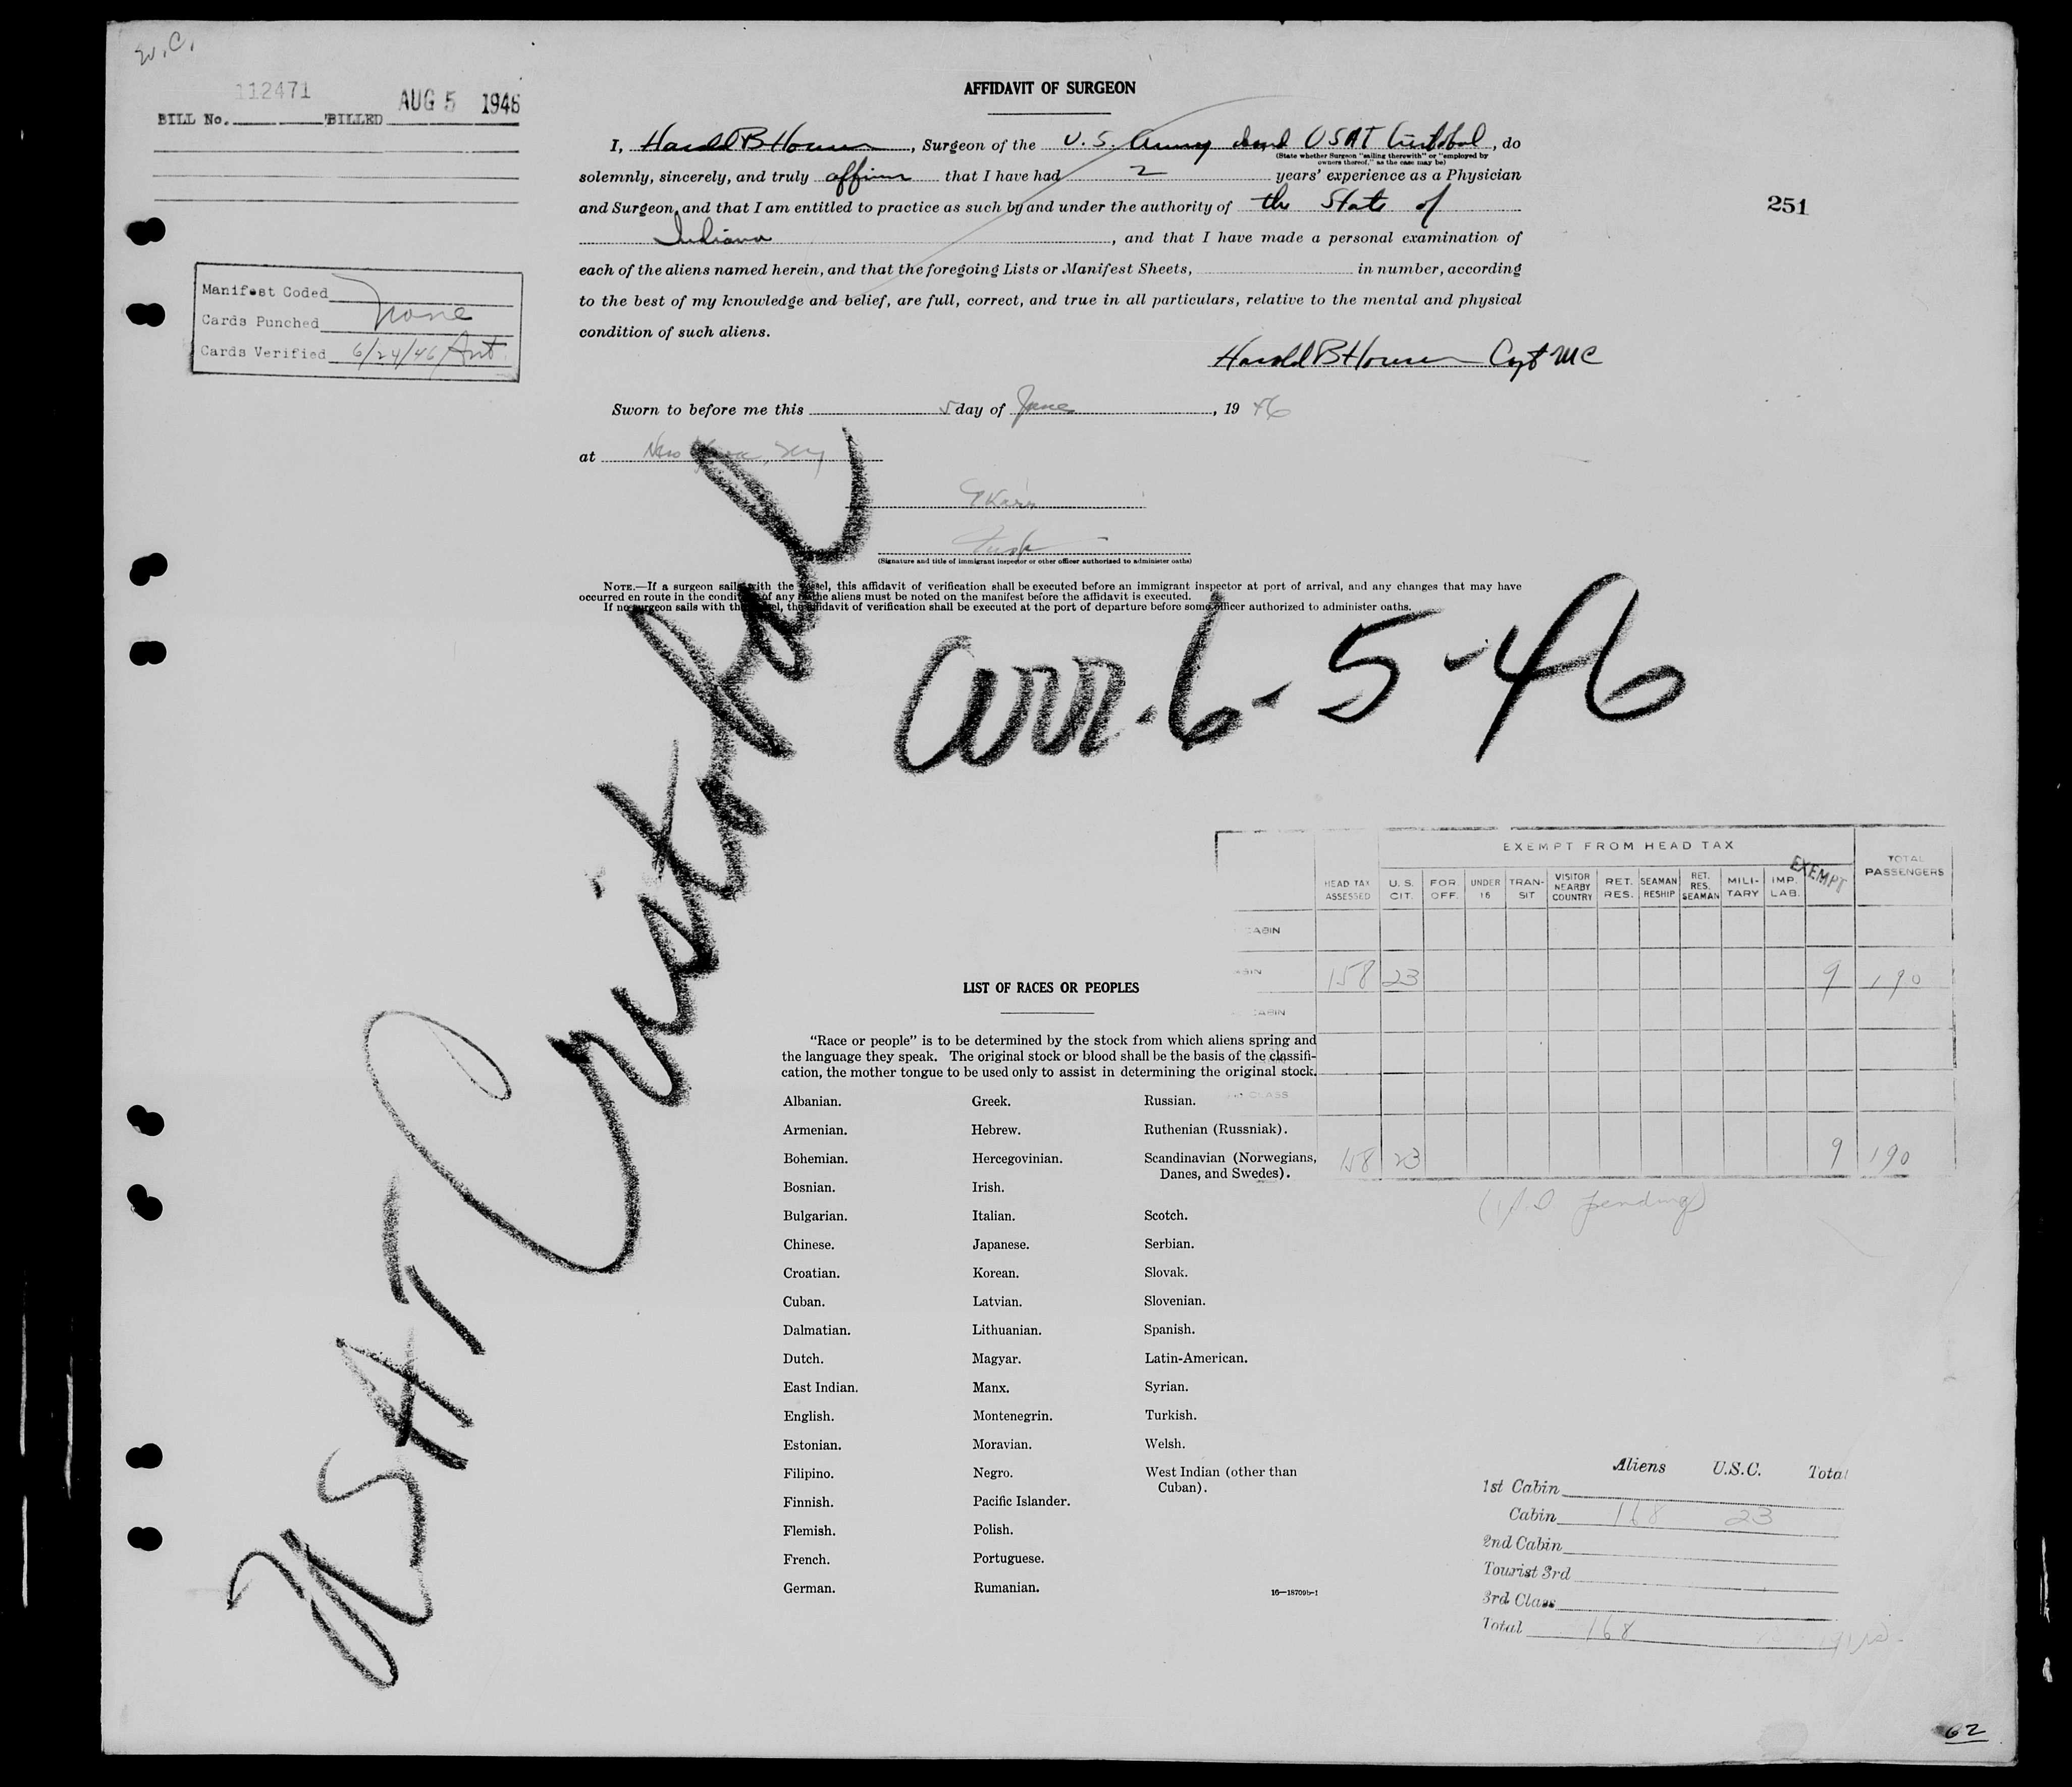 W.C.
112471
AUG 5 1946
BILL No. BILLED
AFFIDAVIT OF SURGEON
I, Harold B Houser, Surgeon of the U.S. Army USAT Cristobal, do
(State whether Surgeon "sailing therewith" or "employed by
owners thereof," as the case may be)
solemnly, sincerely, and truly affirm that I have had 2 years' experience as a Physician
and Surgeon, and that I am entitled to practice as such by and under the authority of the State of
Indiana, and that I have made a personal examination of
each of the aliens named herein, and that the foregoing Lists or Manifest Sheets, in number, according
to the best of my knowledge and belief, are full, correct, and true in all particulars, relative to the mental and physical
condition of such aliens.
251
Manifest Coded
Cards Punched None
Cards Verified 6/24/46
Harold B Houser Capt MC
Sworn to before me this 5 day of June, 19 46
at New York, NY
(Signature and title of immigrant inspector or other officer authorized to administer oaths)
NOTE.—If a surgeon sails with the vessel, this affidavit of verification shall be executed before an immigrant inspector at port of arrival, and any changes that may have
occurred en route in the condition of any of the aliens must be noted on the manifest before the affidavit is executed.
If no surgeon sails with the vessel, the affidavit of verification shall be executed at the port of departure before some officer authorized to administer oaths.
USAT Cristobal
arr. 6-5-46
EXEMPT FROM HEAD TAX
HEAD TAX ASSESSED U.S. CIT. FOR. OFF. UNDER 16 TRAN-SIT VISITOR NEARBY COUNTRY RET. RES. SEAMAN RESHIP RET. RES. SEAMAN MILI-TARY IMP. LAB. EXEMPT TOTAL PASSENGERS
CABIN
158 23 9 190
CABIN
CLASS
158 23 9 190
pending)
LIST OF RACES OR PEOPLES
"Race or people" is to be determined by the stock from which aliens spring and
the language they speak. The original stock or blood shall be the basis of the classifi-
cation, the mother tongue to be used only to assist in determining the original stock.
Albanian. Greek. Russian.
Armenian. Hebrew. Ruthenian (Russniak).
Bohemian. Hercegovinian. Scandinavian (Norwegians,
Danes, and Swedes).
Bosnian. Irish.
Bulgarian. Italian. Scotch.
Chinese. Japanese. Serbian.
Croatian. Korean. Slovak.
Cuban. Latvian. Slovenian.
Dalmatian. Lithuanian. Spanish.
Dutch. Magyar. Latin-American.
East Indian. Manx. Syrian.
English. Montenegrin. Turkish.
Estonian. Moravian. Welsh.
Filipino. Negro. West Indian (other than
Cuban).
Finnish. Pacific Islander.
Flemish. Polish.
French. Portuguese.
German. Rumanian.
16—18709b-1
Aliens U.S.C. Total
1st Cabin
Cabin 168 23
2nd Cabin
Tourist 3rd
3rd Class
Total 168
62